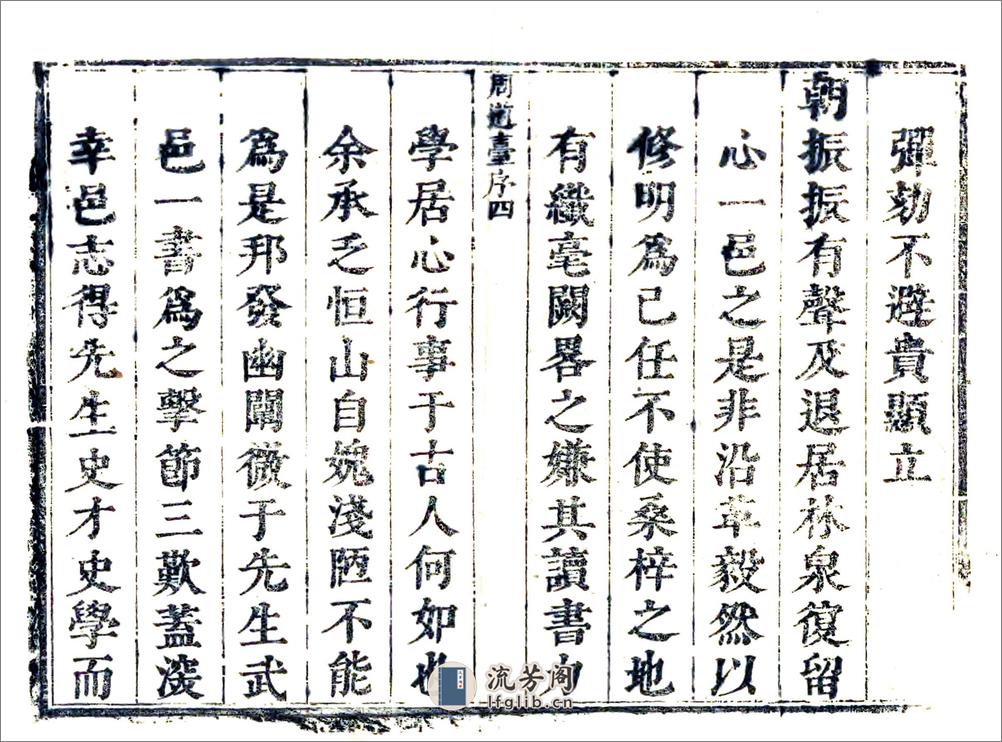 彈劾不避貴顯立
朝振振有聲及退居林泉復留
心一邑之是非沿革毅然以
修明爲已任不使桑梓之地
有纖毫闕畧之嫌其讀書力
周道臺序四
學居心行事于古人何如也
余承乏恒山自媿淺陋不能
爲是邦發幽闡微于先生武
邑一書爲之擊節三歎蓋深
幸邑志得先生史才史學而
流芳阁
lfglib.cn